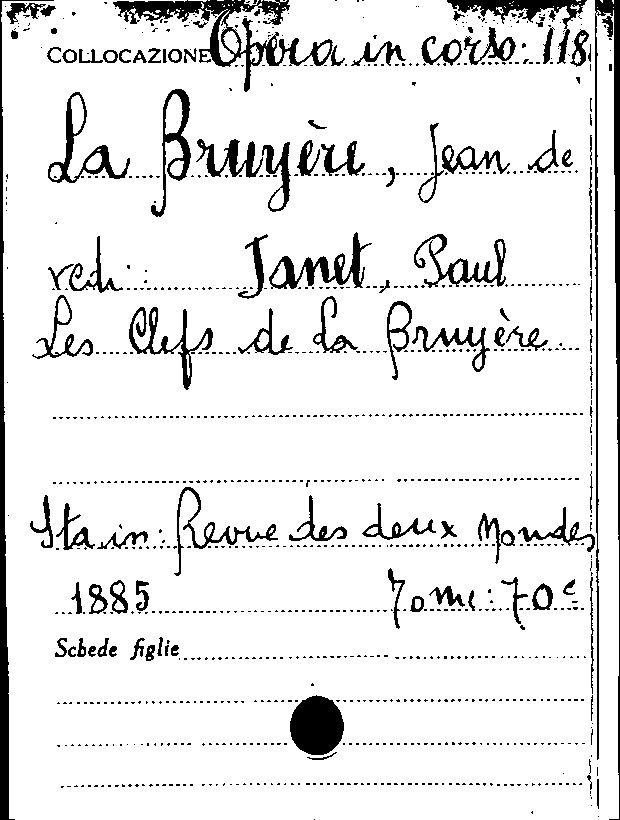 COLLOCAZIONE Opera in corso: 118
La Bruyère, Jean de
vedi: Janet, Paul
Les Clefs de La Bruyère.
Sta in: Revue des deux Mondes
1885 Tome: 70e
Schede figlie